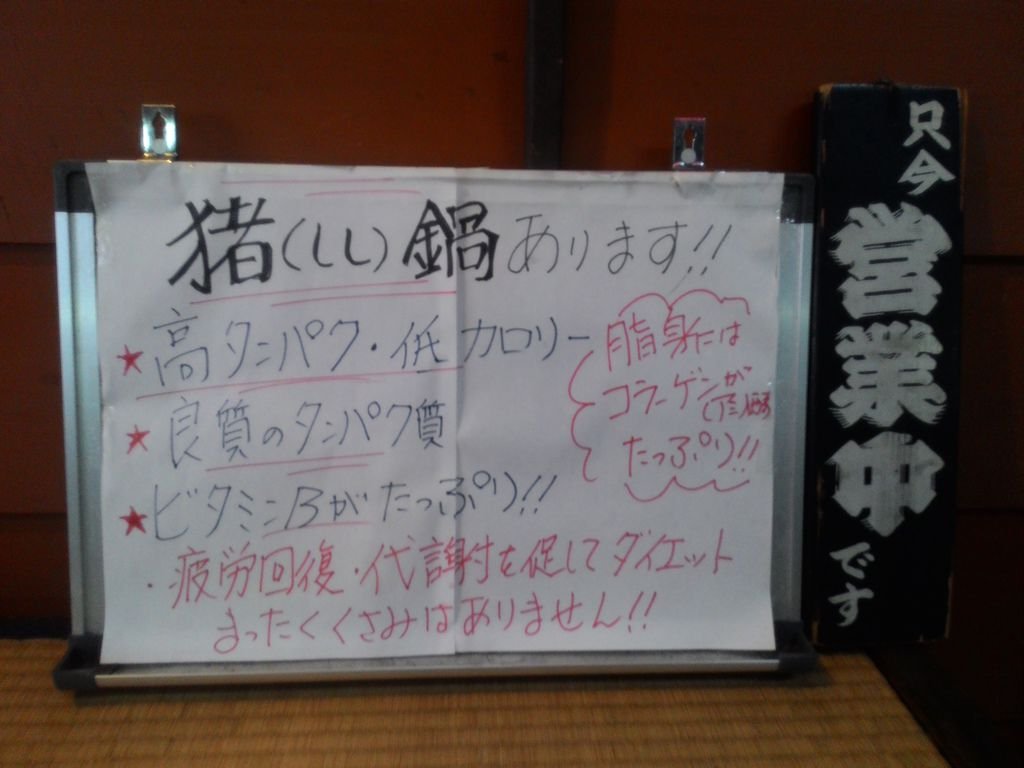 猪(しし)鍋あります!!
★高タンパク・低カロリー
★良質のタンパク質
★ビタミンBがたっぷり!!
・疲労回復・代謝付を促してダイエット
まったくくさみはありません!!
脂身には
コラーゲンが
たっぷり!!
只今
営業中
です